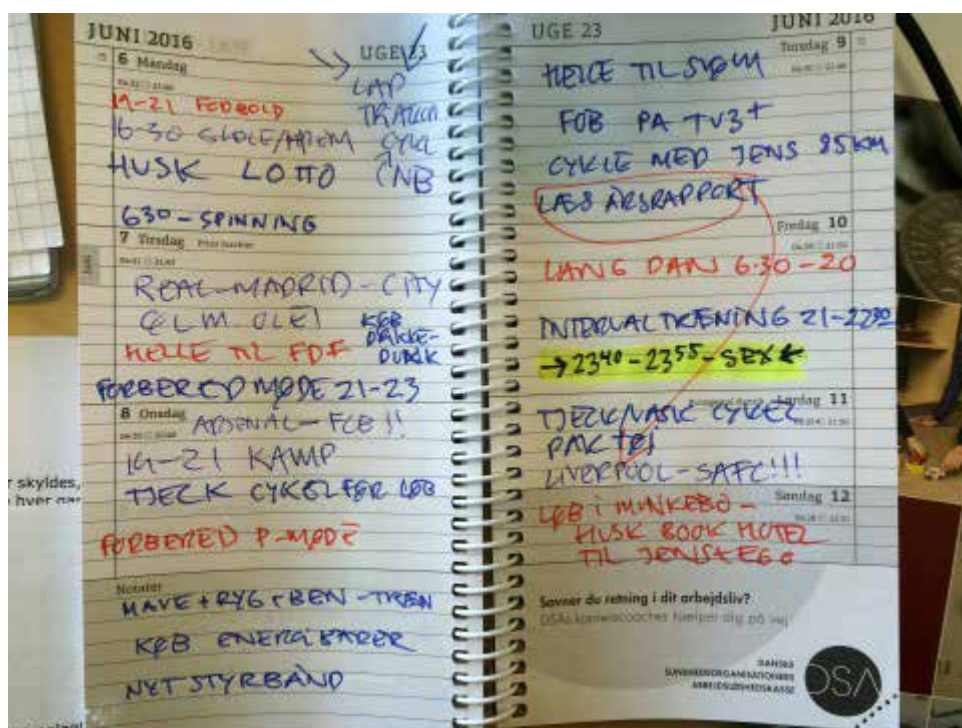 JUNI 2016
UGE 23
6 Mandag
LAP
19-21 FODBOLD
16-30
HUSK LOTTO
630 - SPINNING
7 Tirsdag
REAL-MADRID - CITY
KØB
HELLE TIL FDF
FORBERED MØDE 21-23
8 Onsdag
ARSENAL - FCB!!
19-21 KAMP
TJECK CYKEL FØR LØB
FORBERED P-MØDE
Notater
MAVE + RYG + BEN - TRÆN
KØB ENERGIBARER
NYT STYRBÅND
r skyldes,
hver
UGE 23
JUNI 2016
Torsdag 9
HELLE TIL SVØM
FCB PÅ TV3+
CYKLE MED JENS 85KM
LÆS ÅRSRAPPORT
Fredag 10
LANG DAN 6.30-20
INTERVALTRÆNING 21-2230
→ 2340 - 2355 - SEX ←
Lørdag 11
TJECK CYKEL
PAK TØJ
LIVERPOOL - SAFC!!!
Søndag 12
LØB I MUNKEBO -
HUSK BOOK HOTEL
TIL JENS + EGO
Savner du retning i dit arbejdsliv?
DSAs karrierecoaches hjælper dig på vej
DANSKE
SUNDHEDSORGANISATIONERS
ARBEJDSLØSHEDSKASSE
DSA